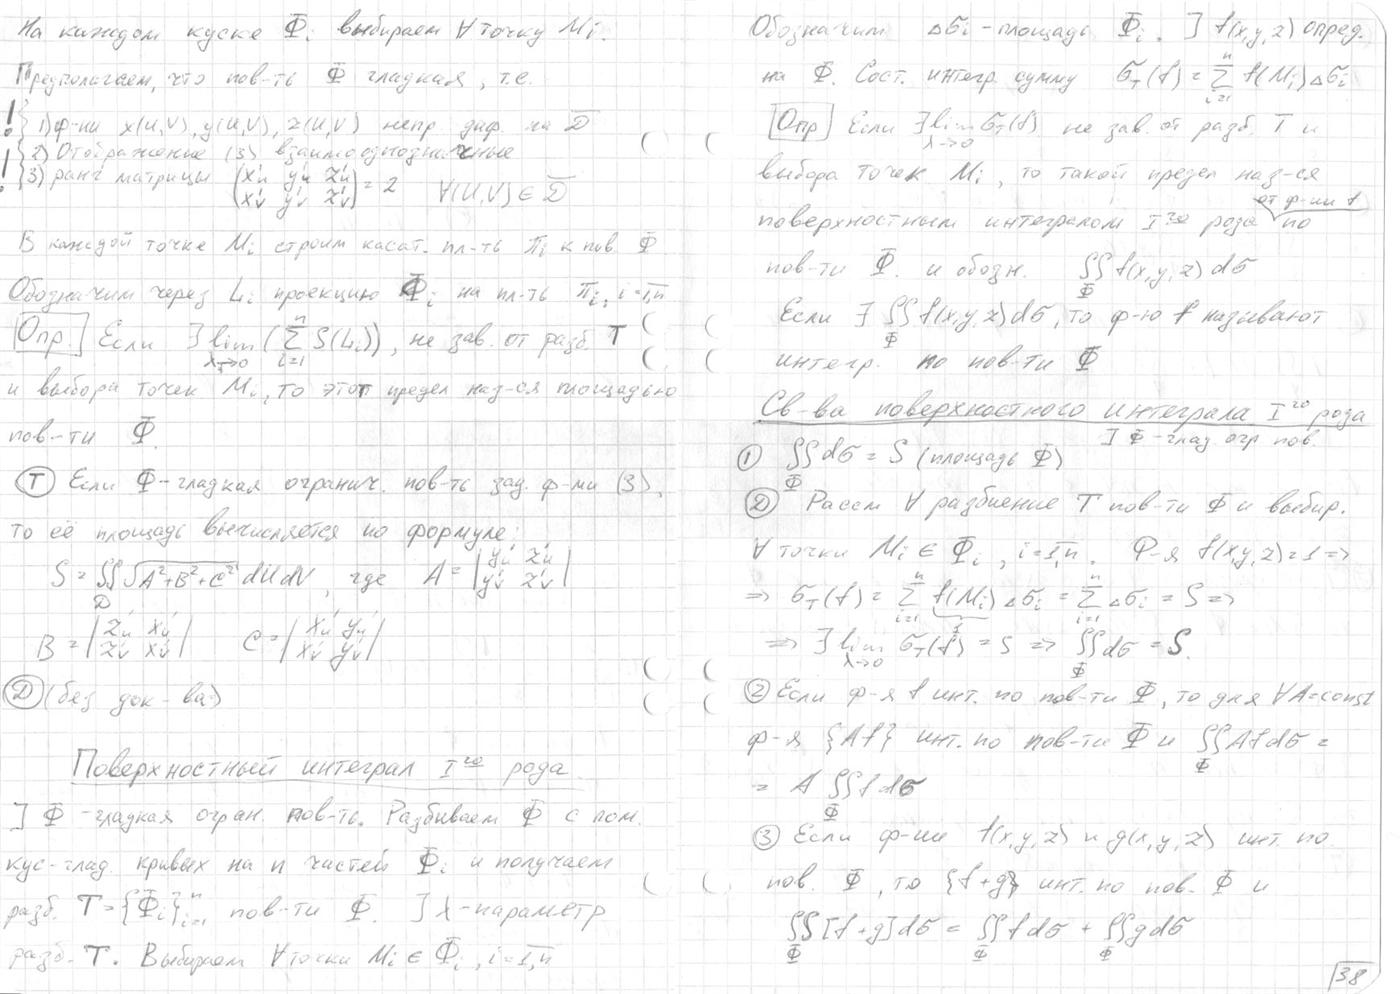 На каждом куске Φ̄ᵢ выбираем ∀ точку Mᵢ.
Предполагаем, что пов-ть Φ̄ гладкая, т.е.
! { 1) ф-ии x(u,v), y(u,v), z(u,v) непр. диф. на D̄
! { 2) Отображение (3) взаимооднозначные
{ 3) ранг матрицы (x'ᵤ y'ᵤ z'ᵤ
x'ᵥ y'ᵥ z'ᵥ) = 2 ∀(u,v) ∈ D̄
В каждой точке Mᵢ строим касат. пл-ть πᵢ к пов. Φ̄
Обозначим через Lᵢ проекцию Φ̄ᵢ на пл-ть πᵢ, i=1,n
Опр. Если ∃ lim (∑ S(Lᵢ)), не зав. от разб. T
λ→0 i=1 n
и выбора точек Mᵢ, то этот предел наз-ся площадью
пов-ти Φ̄.
(T) Если Φ-гладкая огранич. пов-ть зад. ф-ми (3),
то её площадь вычисляется по формуле:
S = ∬ √(A²+B²+C²) du dv, где A = |y'ᵤ z'ᵤ
D y'ᵥ z'ᵥ|
B = |z'ᵤ x'ᵤ C = |x'ᵤ y'ᵤ
z'ᵥ x'ᵥ| x'ᵥ y'ᵥ|
(D) (без док-ва)
Поверхностный интеграл I го рода
] Φ̄ -гладкая огран. пов-ть. Разбиваем Φ̄ с пом.
кус-глад. кривых на n частей Φ̄ᵢ и получаем
разб. T = {Φ̄ᵢ}ⁿᵢ₌₁ пов-ти Φ̄. ] λ-параметр
разб. T. Выбираем ∀ точки Mᵢ ∈ Φ̄ᵢ, i=1,n
Обозначим Δσᵢ - площадь Φ̄ᵢ. ] f(x,y,z) опред.
на Φ̄. Сост. интегр. сумму σ_T(f) = ∑ⁿᵢ₌₁ f(Mᵢ)Δσᵢ
Опр Если ∃ lim σ_T(f) не зав. от разб. T и
λ→0
выбора точек Mᵢ, то такой предел наз-ся
от ф-ии f
поверхностным интегралом I го рода по
пов-ти Φ̄. и обозн. ∬ f(x,y,z) dσ
Φ̄
Если ∃ ∬ f(x,y,z) dσ, то ф-ю f называют
Φ̄
интегр. по пов-ти Φ̄
Св-ва поверхностного интеграла I го рода
] Φ̄-глад. огр. пов.
① ∬ dσ = S (площадь Φ̄)
Φ̄
(D) Рассм ∀ разбиение T пов-ти Φ̄ и выбир.
∀ точки Mᵢ ∈ Φ̄ᵢ, i=1,n. Ф-я f(x,y,z)=1 =>
=> σ_T(f) = ∑ⁿᵢ₌₁ f(Mᵢ) Δσᵢ = ∑ⁿᵢ₌₁ Δσᵢ = S =>
1
=> ∃ lim σ_T(f) = S => ∬ dσ = S.
λ→0 Φ̄
② Если ф-я f инт. по пов-ти Φ̄, то для ∀A=const
ф-я {Af} инт. по пов-ти Φ̄ и ∬ Af dσ =
Φ̄
= A ∬ f dσ
Φ̄
③ Если ф-ии f(x,y,z) и g(x,y,z) инт. по
пов. Φ̄, то {f+g} инт. по пов. Φ̄ и
∬ [f+g] dσ = ∬ f dσ + ∬ g dσ
Φ̄ Φ̄ Φ̄
38